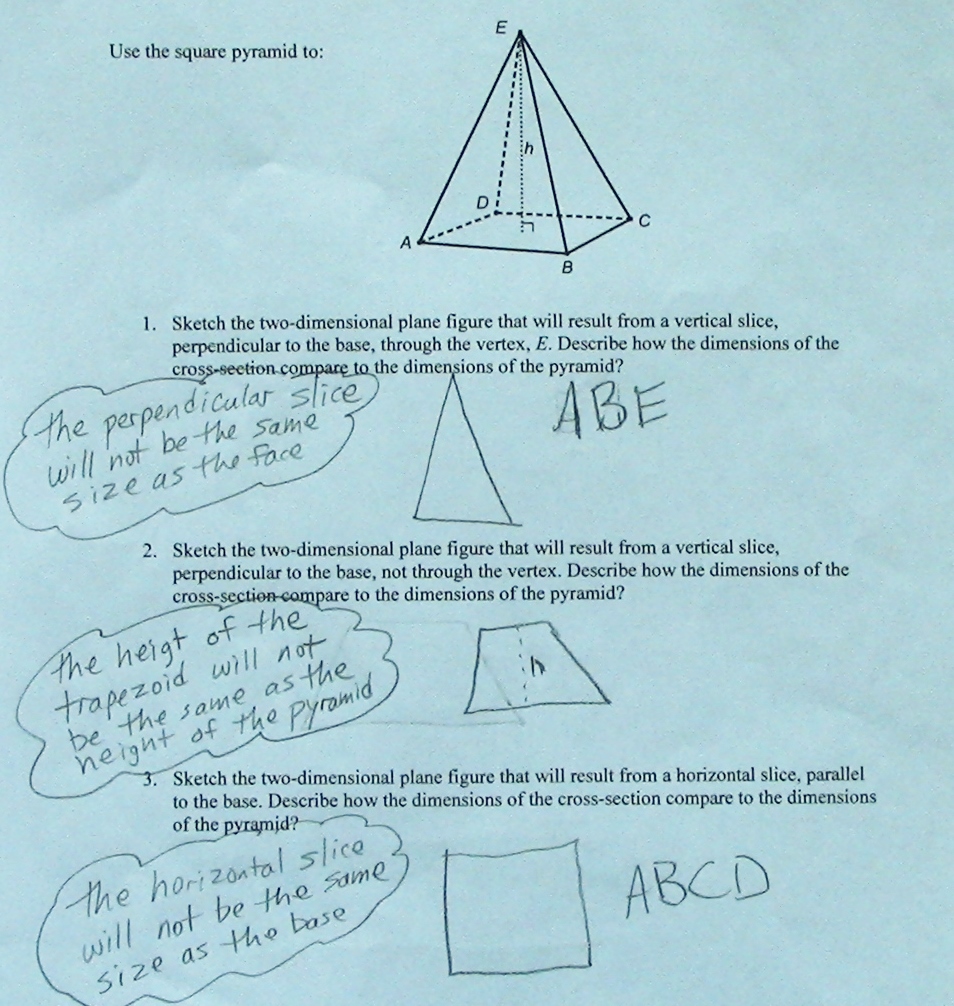 Use the square pyramid to:
E
h
D
C
A
B
1. Sketch the two-dimensional plane figure that will result from a vertical slice,
perpendicular to the base, through the vertex, E. Describe how the dimensions of the
cross-section compare to the dimensions of the pyramid?
the perpendicular slice
will not be the same
size as the face
ABE
2. Sketch the two-dimensional plane figure that will result from a vertical slice,
perpendicular to the base, not through the vertex. Describe how the dimensions of the
cross-section compare to the dimensions of the pyramid?
the heigt of the
trapezoid will not
be the same as the
height of the pyramid
h
3. Sketch the two-dimensional plane figure that will result from a horizontal slice, parallel
to the base. Describe how the dimensions of the cross-section compare to the dimensions
of the pyramid?
the horizontal slice
will not be the same
size as the base
ABCD